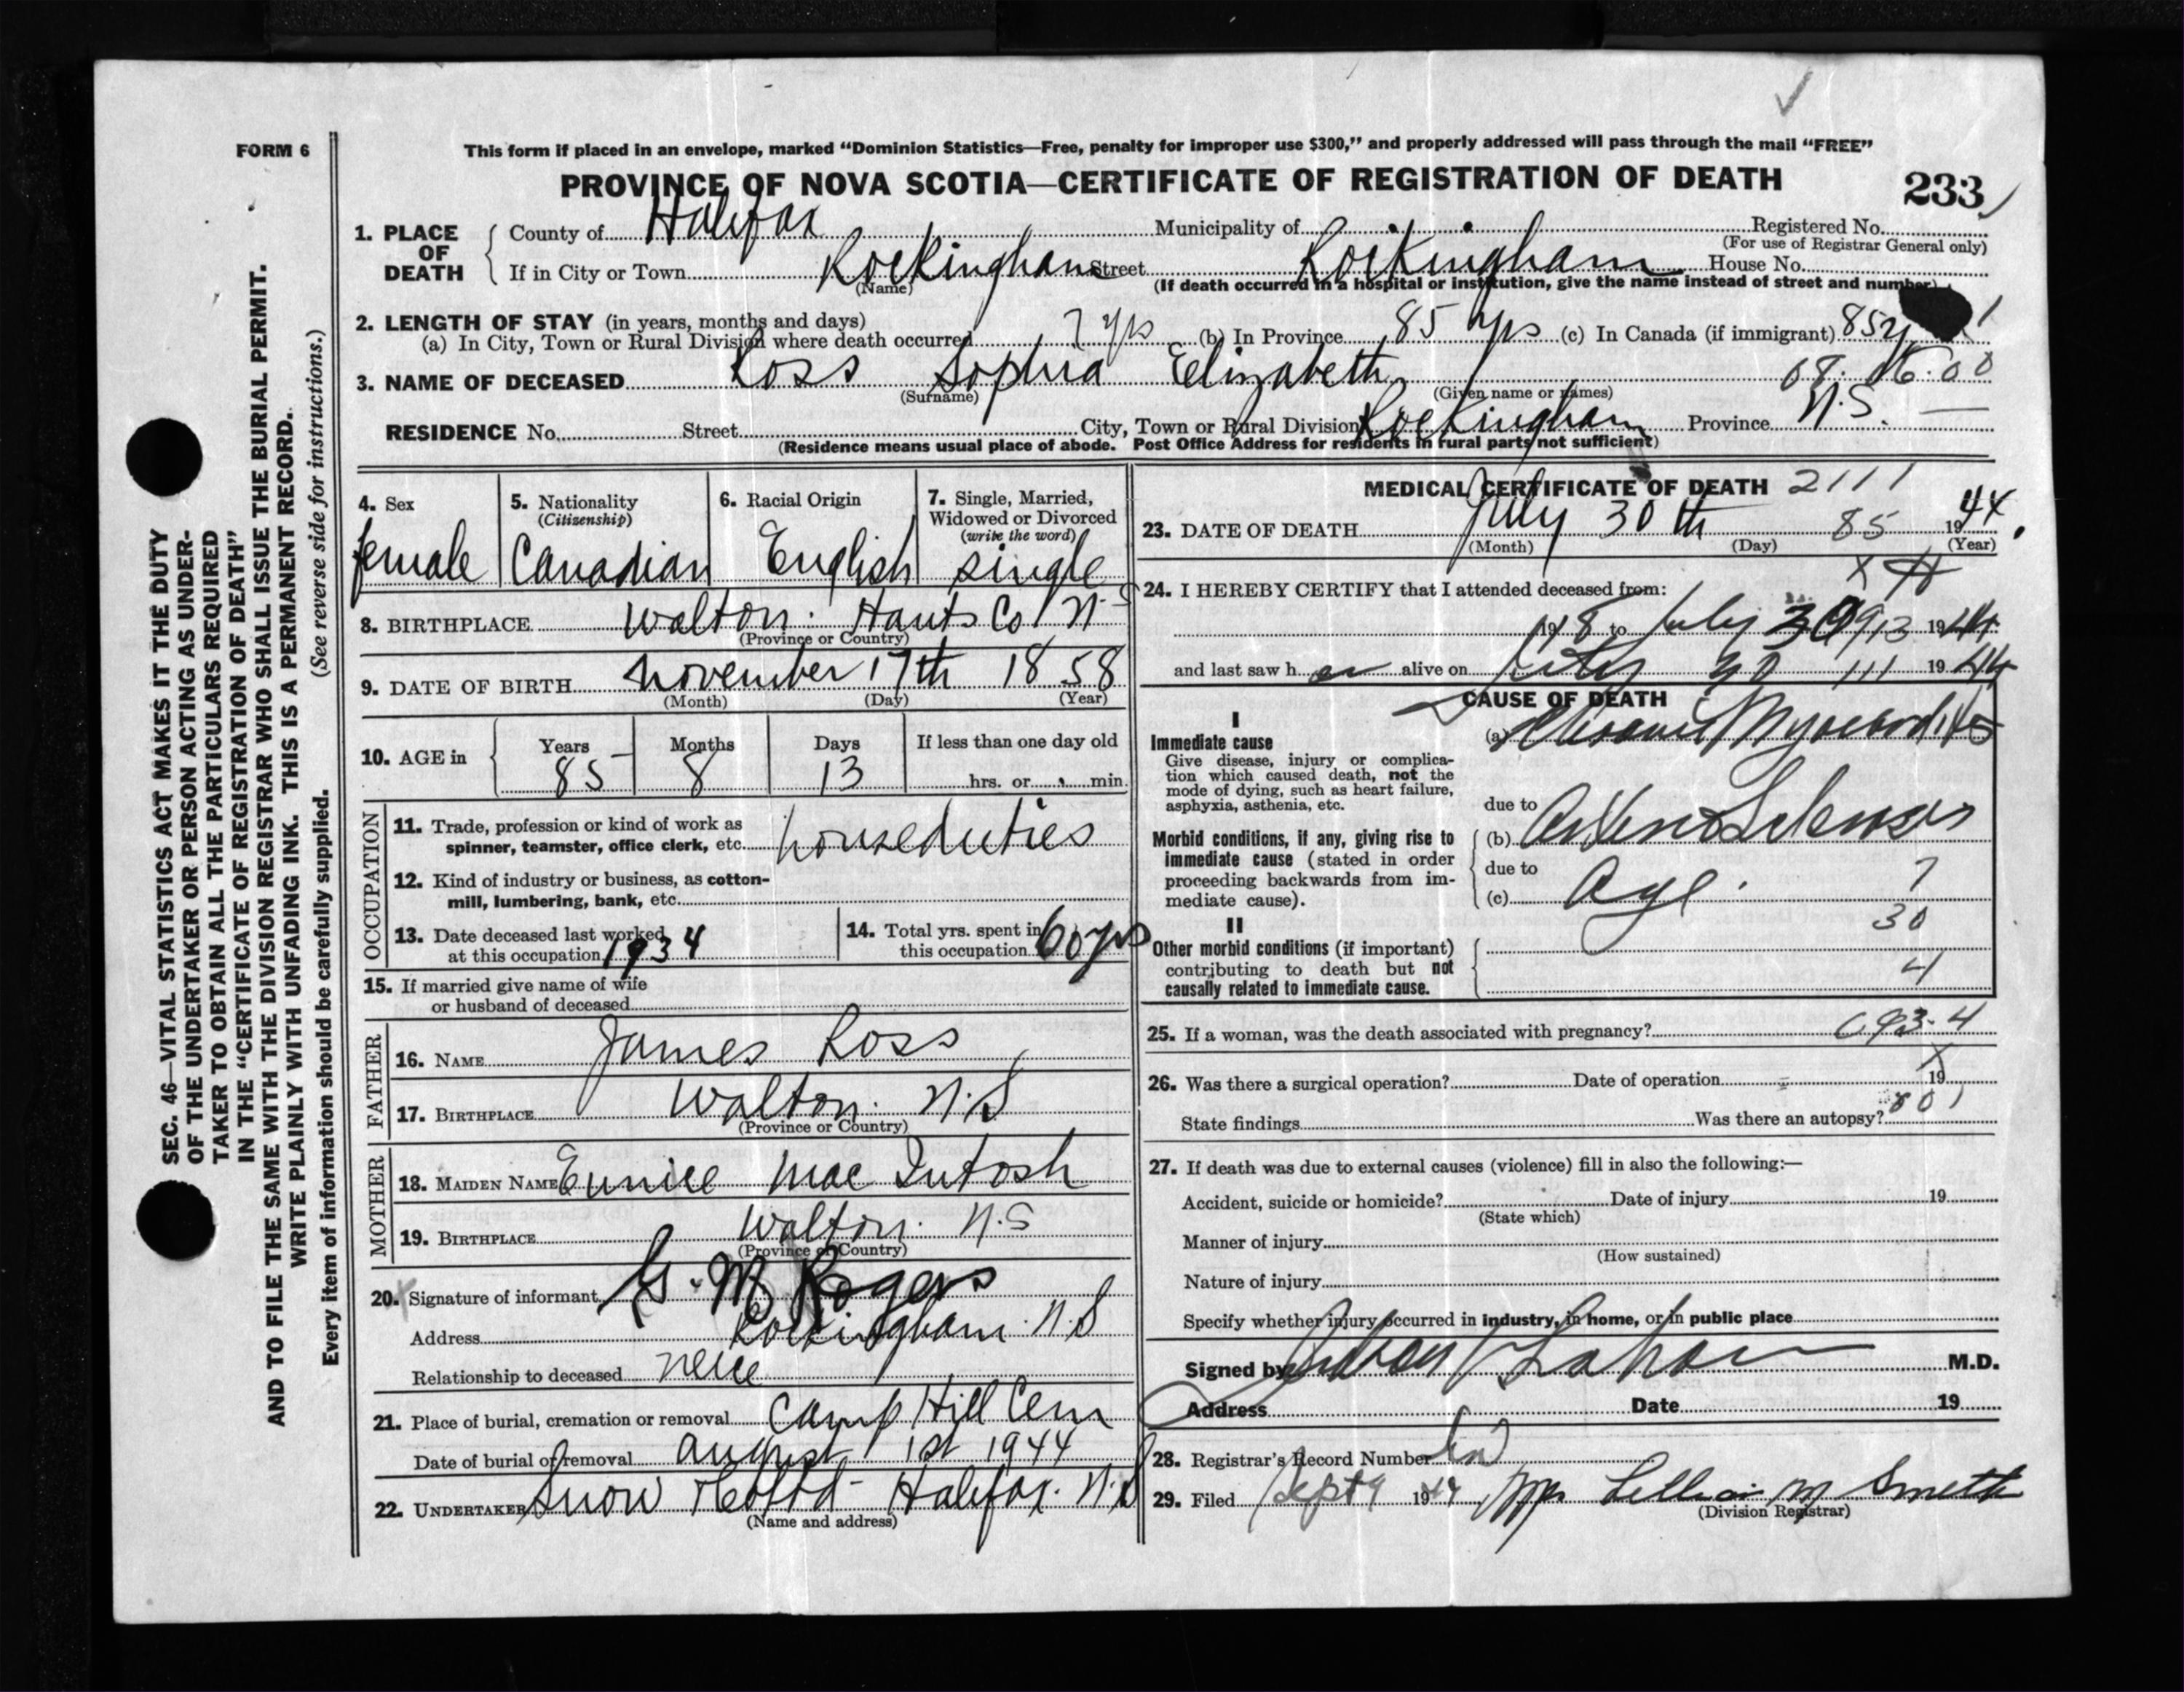 FORM 6
This form if placed in an envelope, marked “Dominion Statistics—Free, penalty for improper use $300,” and properly addressed will pass through the mail “FREE”
PROVINCE OF NOVA SCOTIA—CERTIFICATE OF REGISTRATION OF DEATH 233
SEC. 46—VITAL STATISTICS ACT MAKES IT THE DUTY
OF THE UNDERTAKER OR PERSON ACTING AS UNDER-
TAKER TO OBTAIN ALL THE PARTICULARS REQUIRED
IN THE “CERTIFICATE OF REGISTRATION OF DEATH”
AND TO FILE THE SAME WITH THE DIVISION REGISTRAR WHO SHALL ISSUE THE BURIAL PERMIT.
WRITE PLAINLY WITH UNFADING INK. THIS IS A PERMANENT RECORD.
(See reverse side for instructions.)
Every item of information should be carefully supplied.
1. PLACE OF DEATH County of Halifax Municipality of Registered No.
(For use of Registrar General only)
If in City or Town Rockingham Street Rockingham House No.
(Name) (If death occurred in a hospital or institution, give the name instead of street and number)
2. LENGTH OF STAY (in years, months and days)
(a) In City, Town or Rural Division where death occurred 7 yrs (b) In Province 85 yrs (c) In Canada (if immigrant) 85y
3. NAME OF DECEASED Ross Sophia Elizabeth
(Surname) (Given name or names)
RESIDENCE No. Street City, Town or Rural Division Rockingham Province N.S.
(Residence means usual place of abode. Post Office Address for residents in rural parts not sufficient)
4. Sex female
5. Nationality (Citizenship) Canadian
6. Racial Origin English
7. Single, Married, Widowed or Divorced (write the word) single
8. BIRTHPLACE Walton. Hants Co N.S
(Province or Country)
9. DATE OF BIRTH November 17th 1858
(Month) (Day) (Year)
10. AGE in Years 85 Months 8 Days 13 If less than one day old hrs. or min.
OCCUPATION
11. Trade, profession or kind of work as
spinner, teamster, office clerk, etc. houseduties
12. Kind of industry or business, as cotton-
mill, lumbering, bank, etc.
13. Date deceased last worked
at this occupation 1934
14. Total yrs. spent in
this occupation 60 yrs
15. If married give name of wife
or husband of deceased
FATHER
16. NAME James Ross
17. BIRTHPLACE Walton. N.S
(Province or Country)
MOTHER
18. MAIDEN NAME Eunice Mac Intosh
19. BIRTHPLACE Walton. N.S
(Province or Country)
20. Signature of informant G. M Rogers
Address Rockingham. N.S
Relationship to deceased neice
21. Place of burial, cremation or removal Camp Hill Cem
Date of burial or removal august 1st 1944
22. UNDERTAKER Snow Halifax. N.S
(Name and address)
MEDICAL CERTIFICATE OF DEATH 2111
23. DATE OF DEATH July 30th 85 1944.
(Month) (Day) (Year)
24. I HEREBY CERTIFY that I attended deceased from:
to July 30 1944
and last saw h er alive on July 30 1944
CAUSE OF DEATH
I
Immediate cause
Give disease, injury or complica-
tion which caused death, not the
mode of dying, such as heart failure,
asphyxia, asthenia, etc.
(a) Chronic Myocarditis
due to
Morbid conditions, if any, giving rise to
immediate cause (stated in order
proceeding backwards from im-
mediate cause).
(b) Arteriosclerosis
due to
(c) Age. 7
30
II
Other morbid conditions (if important)
contributing to death but not
causally related to immediate cause.
4
25. If a woman, was the death associated with pregnancy? 093-4
26. Was there a surgical operation? Date of operation 19 X
State findings Was there an autopsy?
27. If death was due to external causes (violence) fill in also the following:—
Accident, suicide or homicide? Date of injury 19
(State which)
Manner of injury
(How sustained)
Nature of injury
Specify whether injury occurred in industry, in home, or in public place
Signed by M.D.
Address Date 19
28. Registrar's Record Number
29. Filed Sept 9 1944 Mrs Lillian M Smith
(Division Registrar)